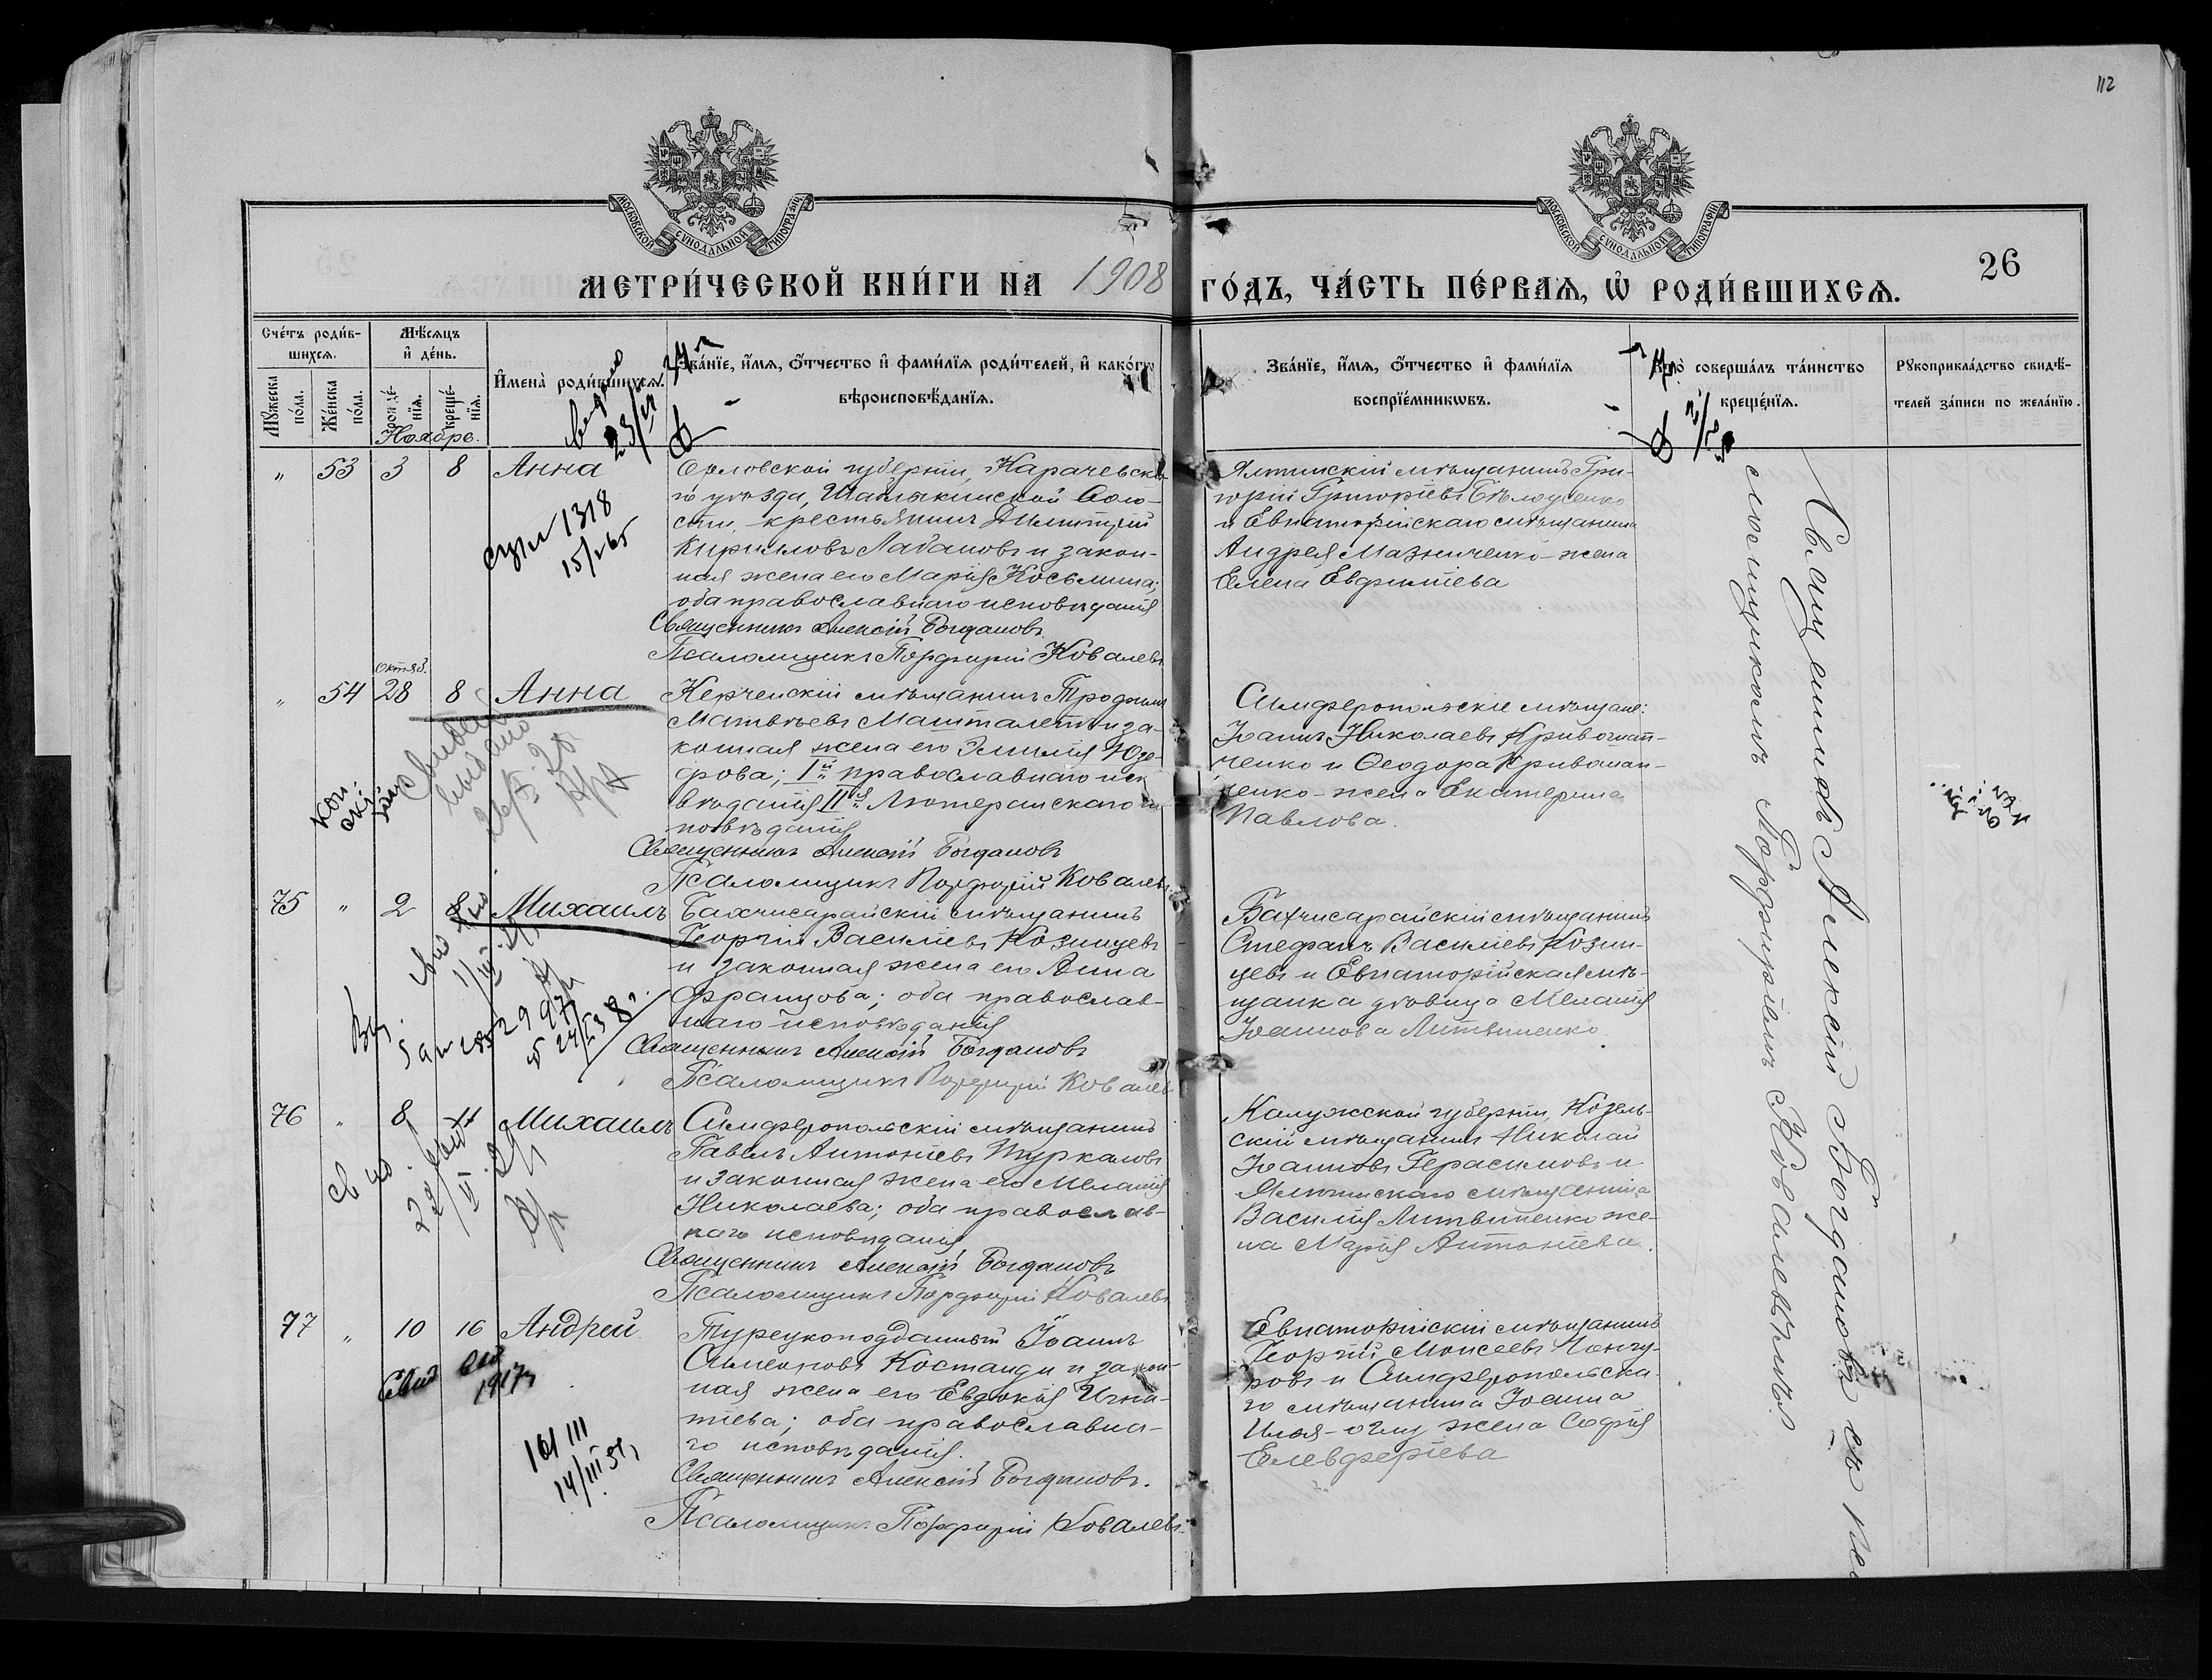 112
МОСКОВСКОЙ СУНОДАЛЬНОЙ ТИПОГРАФІИ
МОСКОВСКОЙ СУНОДАЛЬНОЙ ТИПОГРАФІИ
26
МЕТРИ́ЧЕСКОЙ КНИ́ГИ НА 1908 ГО́ДЪ, ЧА́СТЬ ПЕ́РВАѦ, Ѡ҆ РОДИ́ВШИХСѦ.
Сче́тъ роди́в-
шихсѧ.
Мѹ́жеска по́ла.
Же́нска по́ла.
Мѣ́сѧцъ
и҆ де́нь.
рожде́-
нїѧ.
креще́-
нїѧ.
Ноябрь.
И҆мена̀ роди́вшихсѧ.
Зва́нїе, и҆́мѧ, ѻ҆́тчество и҆ фами́лїѧ роди́телей, и҆ како́гѡ
вѣроисповѣ́данїѧ.
Зва́нїе, и҆́мѧ, ѻ҆́тчество и҆ фами́лїѧ
воспрїе́мникѡвъ.
Кто̀ соверша́лъ та́инство
креще́нїѧ.
Рѹкоприкла́дство свидѣ́-
телей за́писи по жела́нїю.
„ 53 3 8 Анна
1318
15/
Орловской губерніи, Карачевска-
го уѣзда, Шаблыкинской воло-
сти, крестьянинъ Димитрій
Кирилловъ Лабановъ и закон-
ная жена его Марія Косьмина;
оба православнаго исповѣданія
Священникъ Алексій Богдановъ
Псаломщикъ Порфирій Ковалевъ
Ялтинскій мѣщанинъ Гри-
горій Григоріевъ Бѣлоусенко
и Евпаторійскаго мѣщанина
Андрея Мазниченко - жена
Елена Евфиміева
Октяб.
„ 54 28 8 Анна
выдано
Керченскій мѣщанинъ Трофимъ
Матвѣевъ Машталетъ и за-
конная жена его Эмилія Юзе-
фова; I й православнаго исп
вѣданія II я Лютеранскаго ис
повѣданія
Священникъ Алексій Богдановъ
Псаломщикъ Порфирій Ковалевъ
Симферопольскіе мѣщане:
Іоаннъ Николаевъ Кривошап-
ченко и Ѳеодора Кривошап-
ченко - жена Екатерина
Павлова.
75 „ 2 8 Михаилъ
Бахчисарайскій мѣщанинъ
Георгій Василіевъ Козинцевъ
и законная жена его Анна
Францова; оба православ-
наго исповѣданія
Священникъ Алексій Богдановъ
Псаломщикъ Порфирій Ковалев
Бахчисарайскій мѣщанинъ
Стефанъ Василіевъ Козин-
цевъ и Евпаторійская мѣ-
щанка дѣвица Меланія
Іоаннова Литвиненко.
76 „ 8 Михаилъ
Симферопольскій мѣщанинъ
Павелъ Антоніевъ Туркаловъ
и законная жена его Меланія
Николаева; оба православ-
наго исповѣданія
Священникъ Алексій Богдановъ
Псаломщикъ Порфирій Ковалевъ
Калужской губерніи, Козель-
скій мѣщанинъ Николай
Іоанновъ Герасимовъ и
Ялтинскаго мѣщанина
Василія Литвиненко же-
на Марія Антоніева.
77 „ 10 16 Андрей
1917
14/III
Турецкоподданный Іоаннъ
Симеоновъ Костанди и закон-
ная жена его Евдокія Игна-
тіева; оба православна-
го исповѣданія.
Священникъ Алексій Богдановъ.
Псаломщикъ Порфирій Ковалевъ.
Евпаторійскій мѣщанинъ
Георгій Моисеевъ
и Симферопольска-
го мѣщанина Іоанна
жена Софія
Елевферіева
Священникъ Алексій Богдановъ съ пса
ломщикомъ Порфиріемъ Ковалевымъ